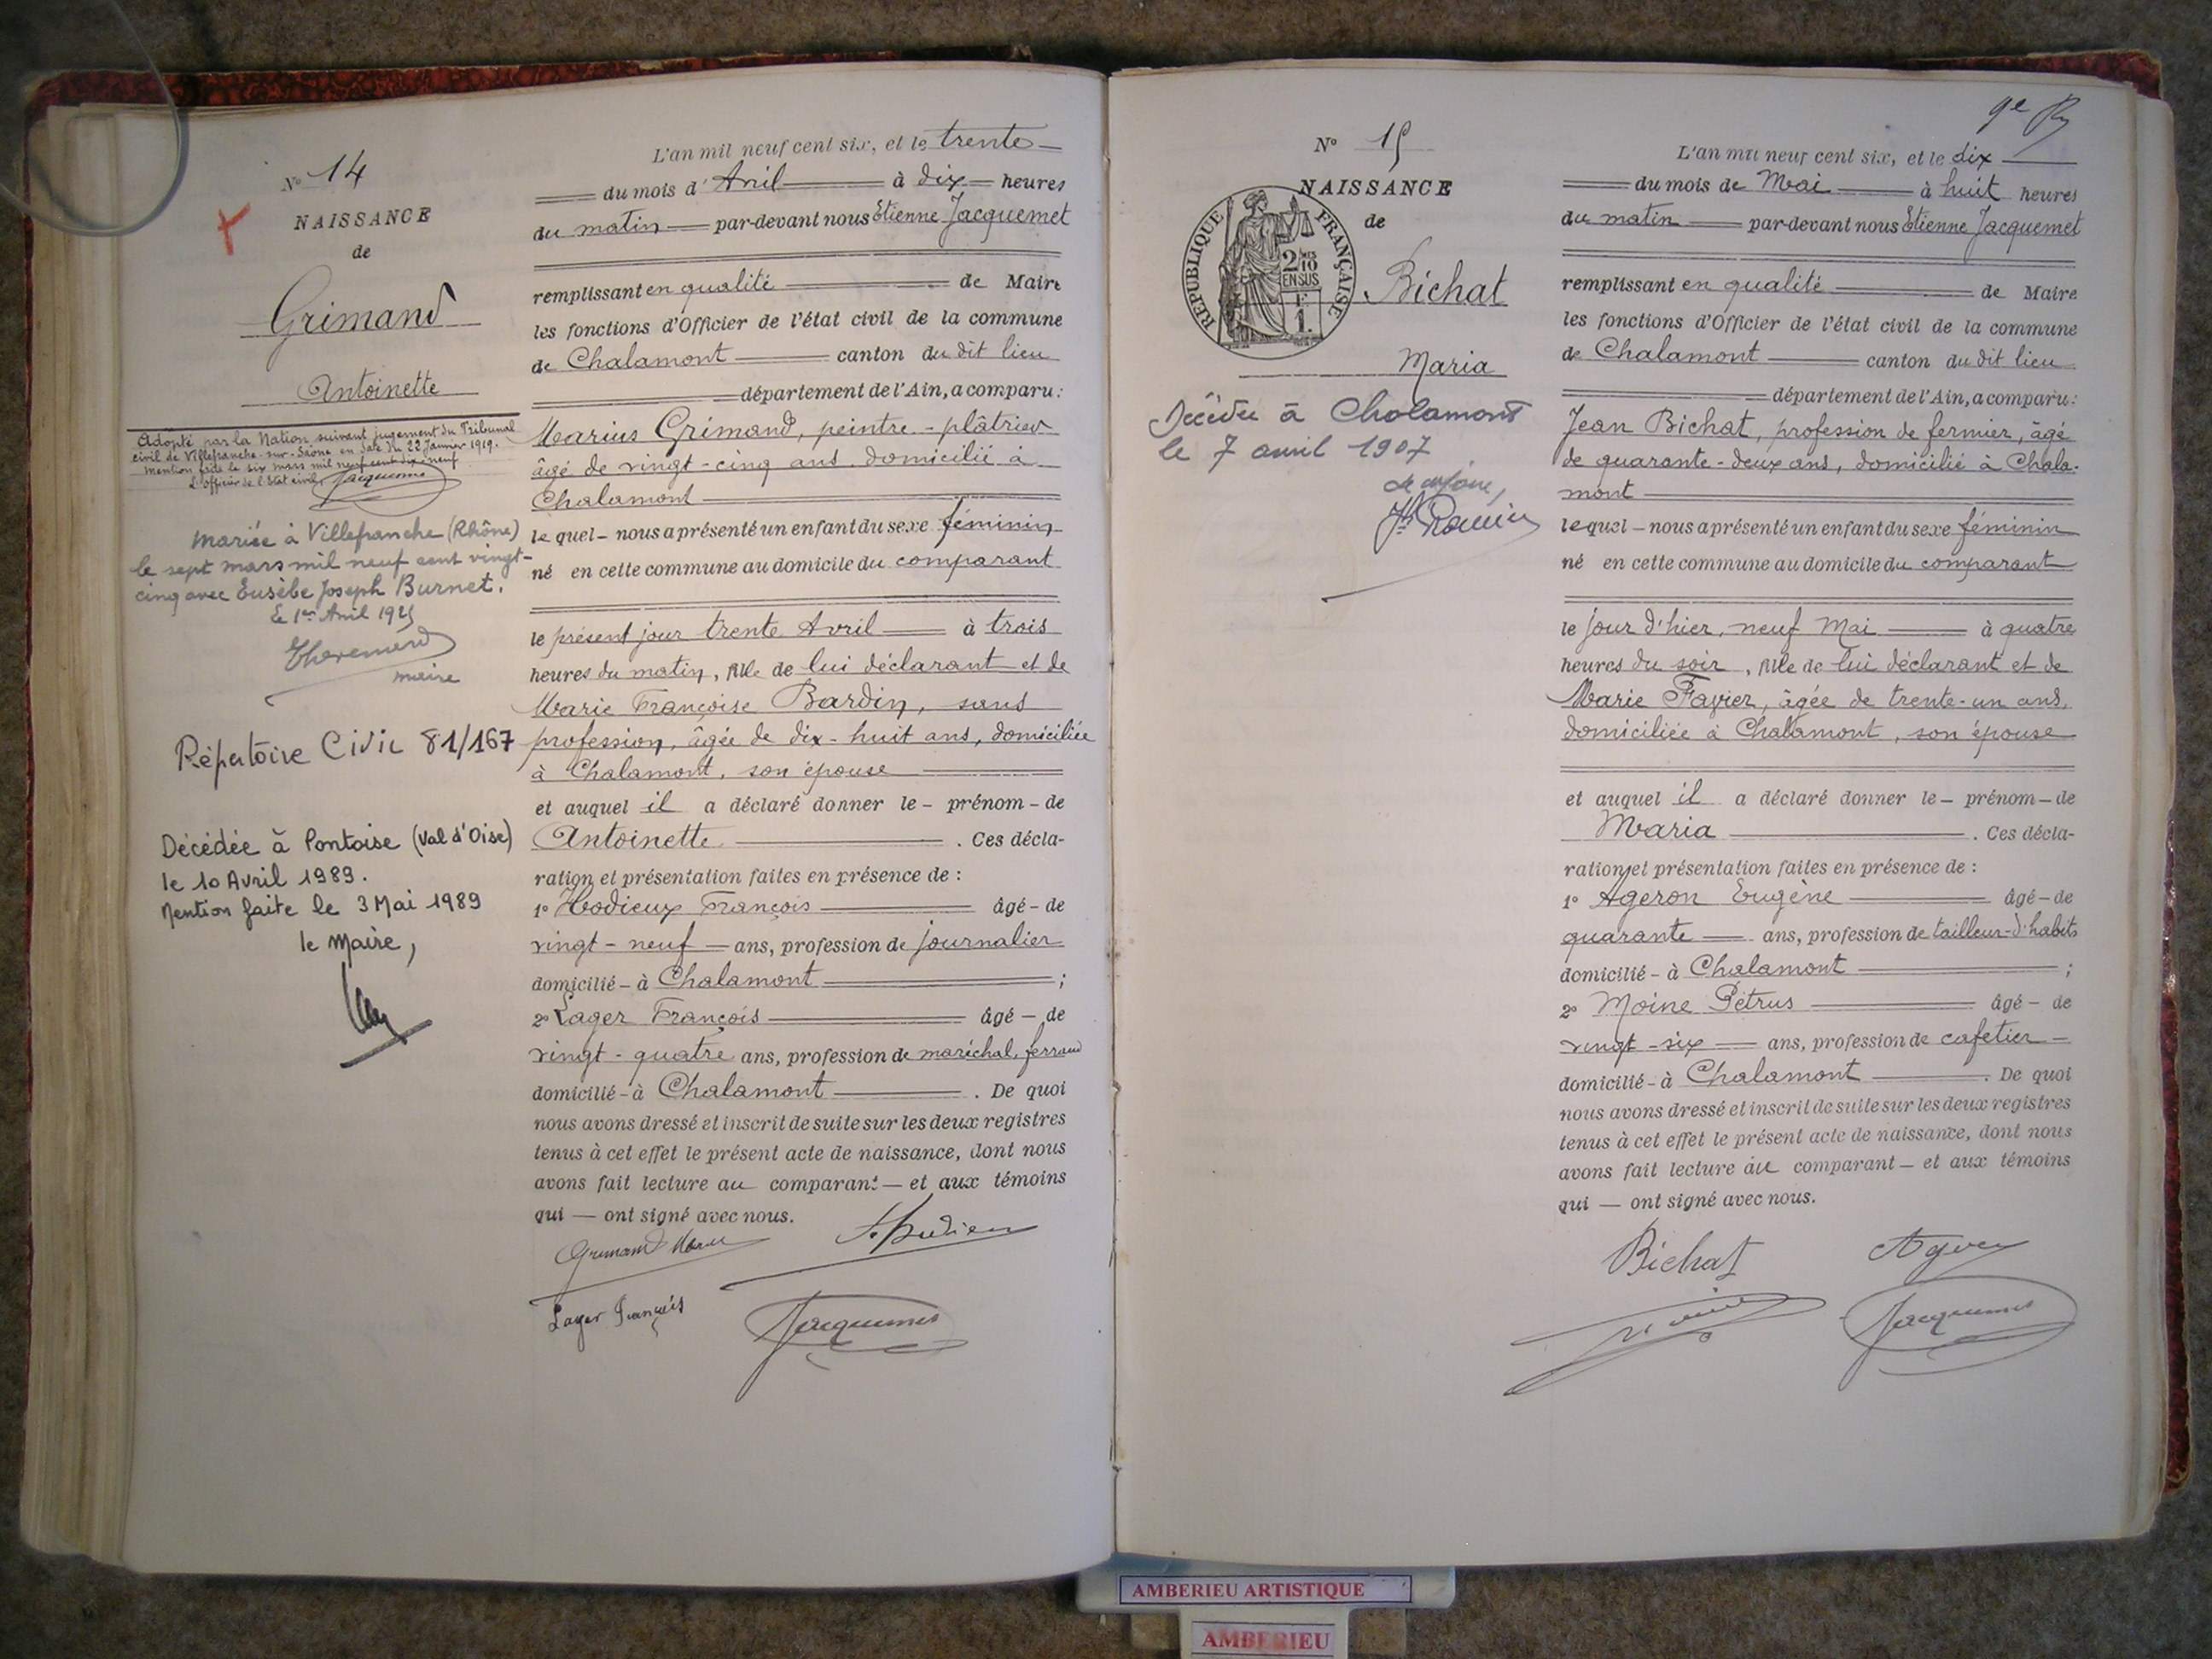 No 14
NAISSANCE
de
Grimand
Antoinette
Adopté par la Nation suivant jugement du Tribunal
civil de Villefranche-sur-Saône en date du 22 Janvier 1919.
Mention faite le six mars mil neuf cent dix-neuf
L'officier de l'Etat civil, Jacquemet
Mariée à Villefranche (Rhône)
le sept mars mil neuf cent vingt-
cinq avec Eusèbe Joseph Burnet.
Le 1er Avril 1925
maire
Répertoire Civil 81/167
Décédée à Pontoise (Val d'Oise)
le 10 Avril 1989.
Mention faite le 3 Mai 1989
le Maire,
L'an mil neuf cent six, et le trente
du mois d'Avril à dix heures
du matin par-devant nous Etienne Jacquemet
remplissant en qualité de Maire
les fonctions d'Officier de l'état civil de la commune
de Chalamont canton du dit lieu
département de l'Ain, a comparu:
Marius Grimand, peintre-plâtrier
âgé de vingt-cinq ans domicilié à
Chalamont
lequel nous a présenté un enfant du sexe féminin
né en cette commune au domicile du comparant
le présent jour trente Avril à trois
heures du matin, fille de lui déclarant et de
Marie Françoise Bardin, sans
profession, âgée de dix-huit ans, domiciliée
à Chalamont, son épouse
et auquel il a déclaré donner le prénom de
Antoinette. Ces décla-
ration et présentation faites en présence de :
1° Hodieux François âgé de
vingt-neuf ans, profession de journalier
domicilié à Chalamont ;
2° Lager François âgé de
vingt-quatre ans, profession de maréchal-ferrand
domicilié à Chalamont. De quoi
nous avons dressé et inscrit de suite sur les deux registres
tenus à cet effet le présent acte de naissance, dont nous
avons fait lecture au comparant et aux témoins
qui ont signé avec nous.
Grimand
Lager François Jacquemet
9e
No 15
NAISSANCE
de
RÉPUBLIQUE FRANÇAISE
2/10
EN SUS
F
1.
Bichat
Maria
Décédée à Chalamont
le 7 avril 1907
L'an mil neuf cent six, et le dix
du mois de Mai à huit heures
du matin par-devant nous Etienne Jacquemet
remplissant en qualité de Maire
les fonctions d'Officier de l'état civil de la commune
de Chalamont canton du dit lieu
département de l'Ain, a comparu:
Jean Bichat, profession de fermier, âgé
de quarante-deux ans, domicilié à Chala-
mont
lequel nous a présenté un enfant du sexe féminin
né en cette commune au domicile du comparant
le jour d'hier, neuf Mai à quatre
heures du soir, fille de lui déclarant et de
Marie Favier, âgée de trente-un ans,
domiciliée à Chalamont, son épouse
et auquel il a déclaré donner le prénom de
Maria. Ces décla-
ration et présentation faites en présence de :
1° Ageron Eugène âgé de
quarante ans, profession de tailleur-d'habits
domicilié à Chalamont ;
2° Moine Pétrus âgé de
vingt-six ans, profession de cafetier
domicilié à Chalamont. De quoi
nous avons dressé et inscrit de suite sur les deux registres
tenus à cet effet le présent acte de naissance, dont nous
avons fait lecture au comparant et aux témoins
qui ont signé avec nous.
Bichat
Jacquemet
AMBERIEU ARTISTIQUE
AMBERIEU